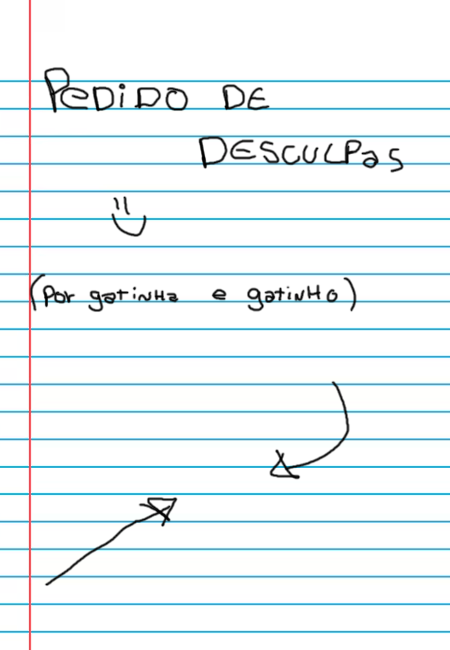 PEDIDO DE
DESCULPAS
(Por gatinha e gatinho)